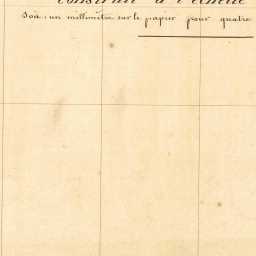 construit à l'échelle
Soit : un millimètre sur le papier pour quatre